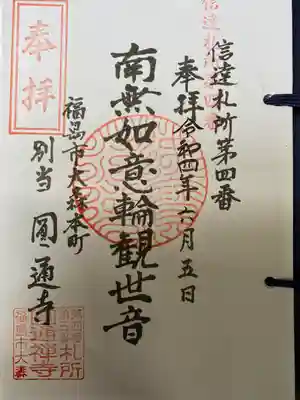 信達札所第四番
奉拝令和四年六月五日
南無如意輪観世音
福島市大森本町
別当 圓通寺
奉拝
信達札所第四番
札所
圓通禅寺
福島市大森